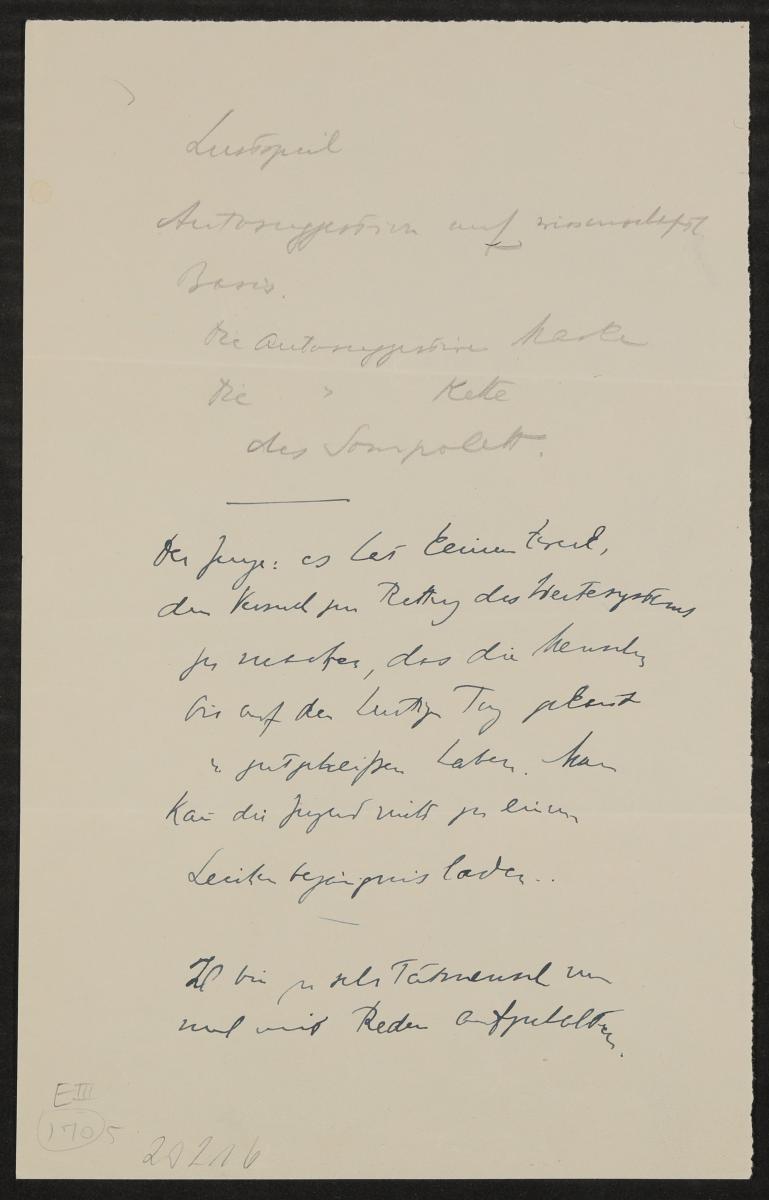 Lustspiel
Autosuggestion auf wissenschaftl
Basis.
Die Autosuggestive Maske
Die " Kette
des
Der Junge: es hat keinen Zweck,
den Versuch zur Rettung des Wertesystems
zu machen, das die Menschen
bis auf den heutigen Tag gekannt
u gutgeheißen haben. Man
Kann die Jugend nicht zu einem
Leichenbegängnis laden..
Ich bin zu sehr Tatmensch um
mich mit Reden aufzuhalten.
E III
1705
20216